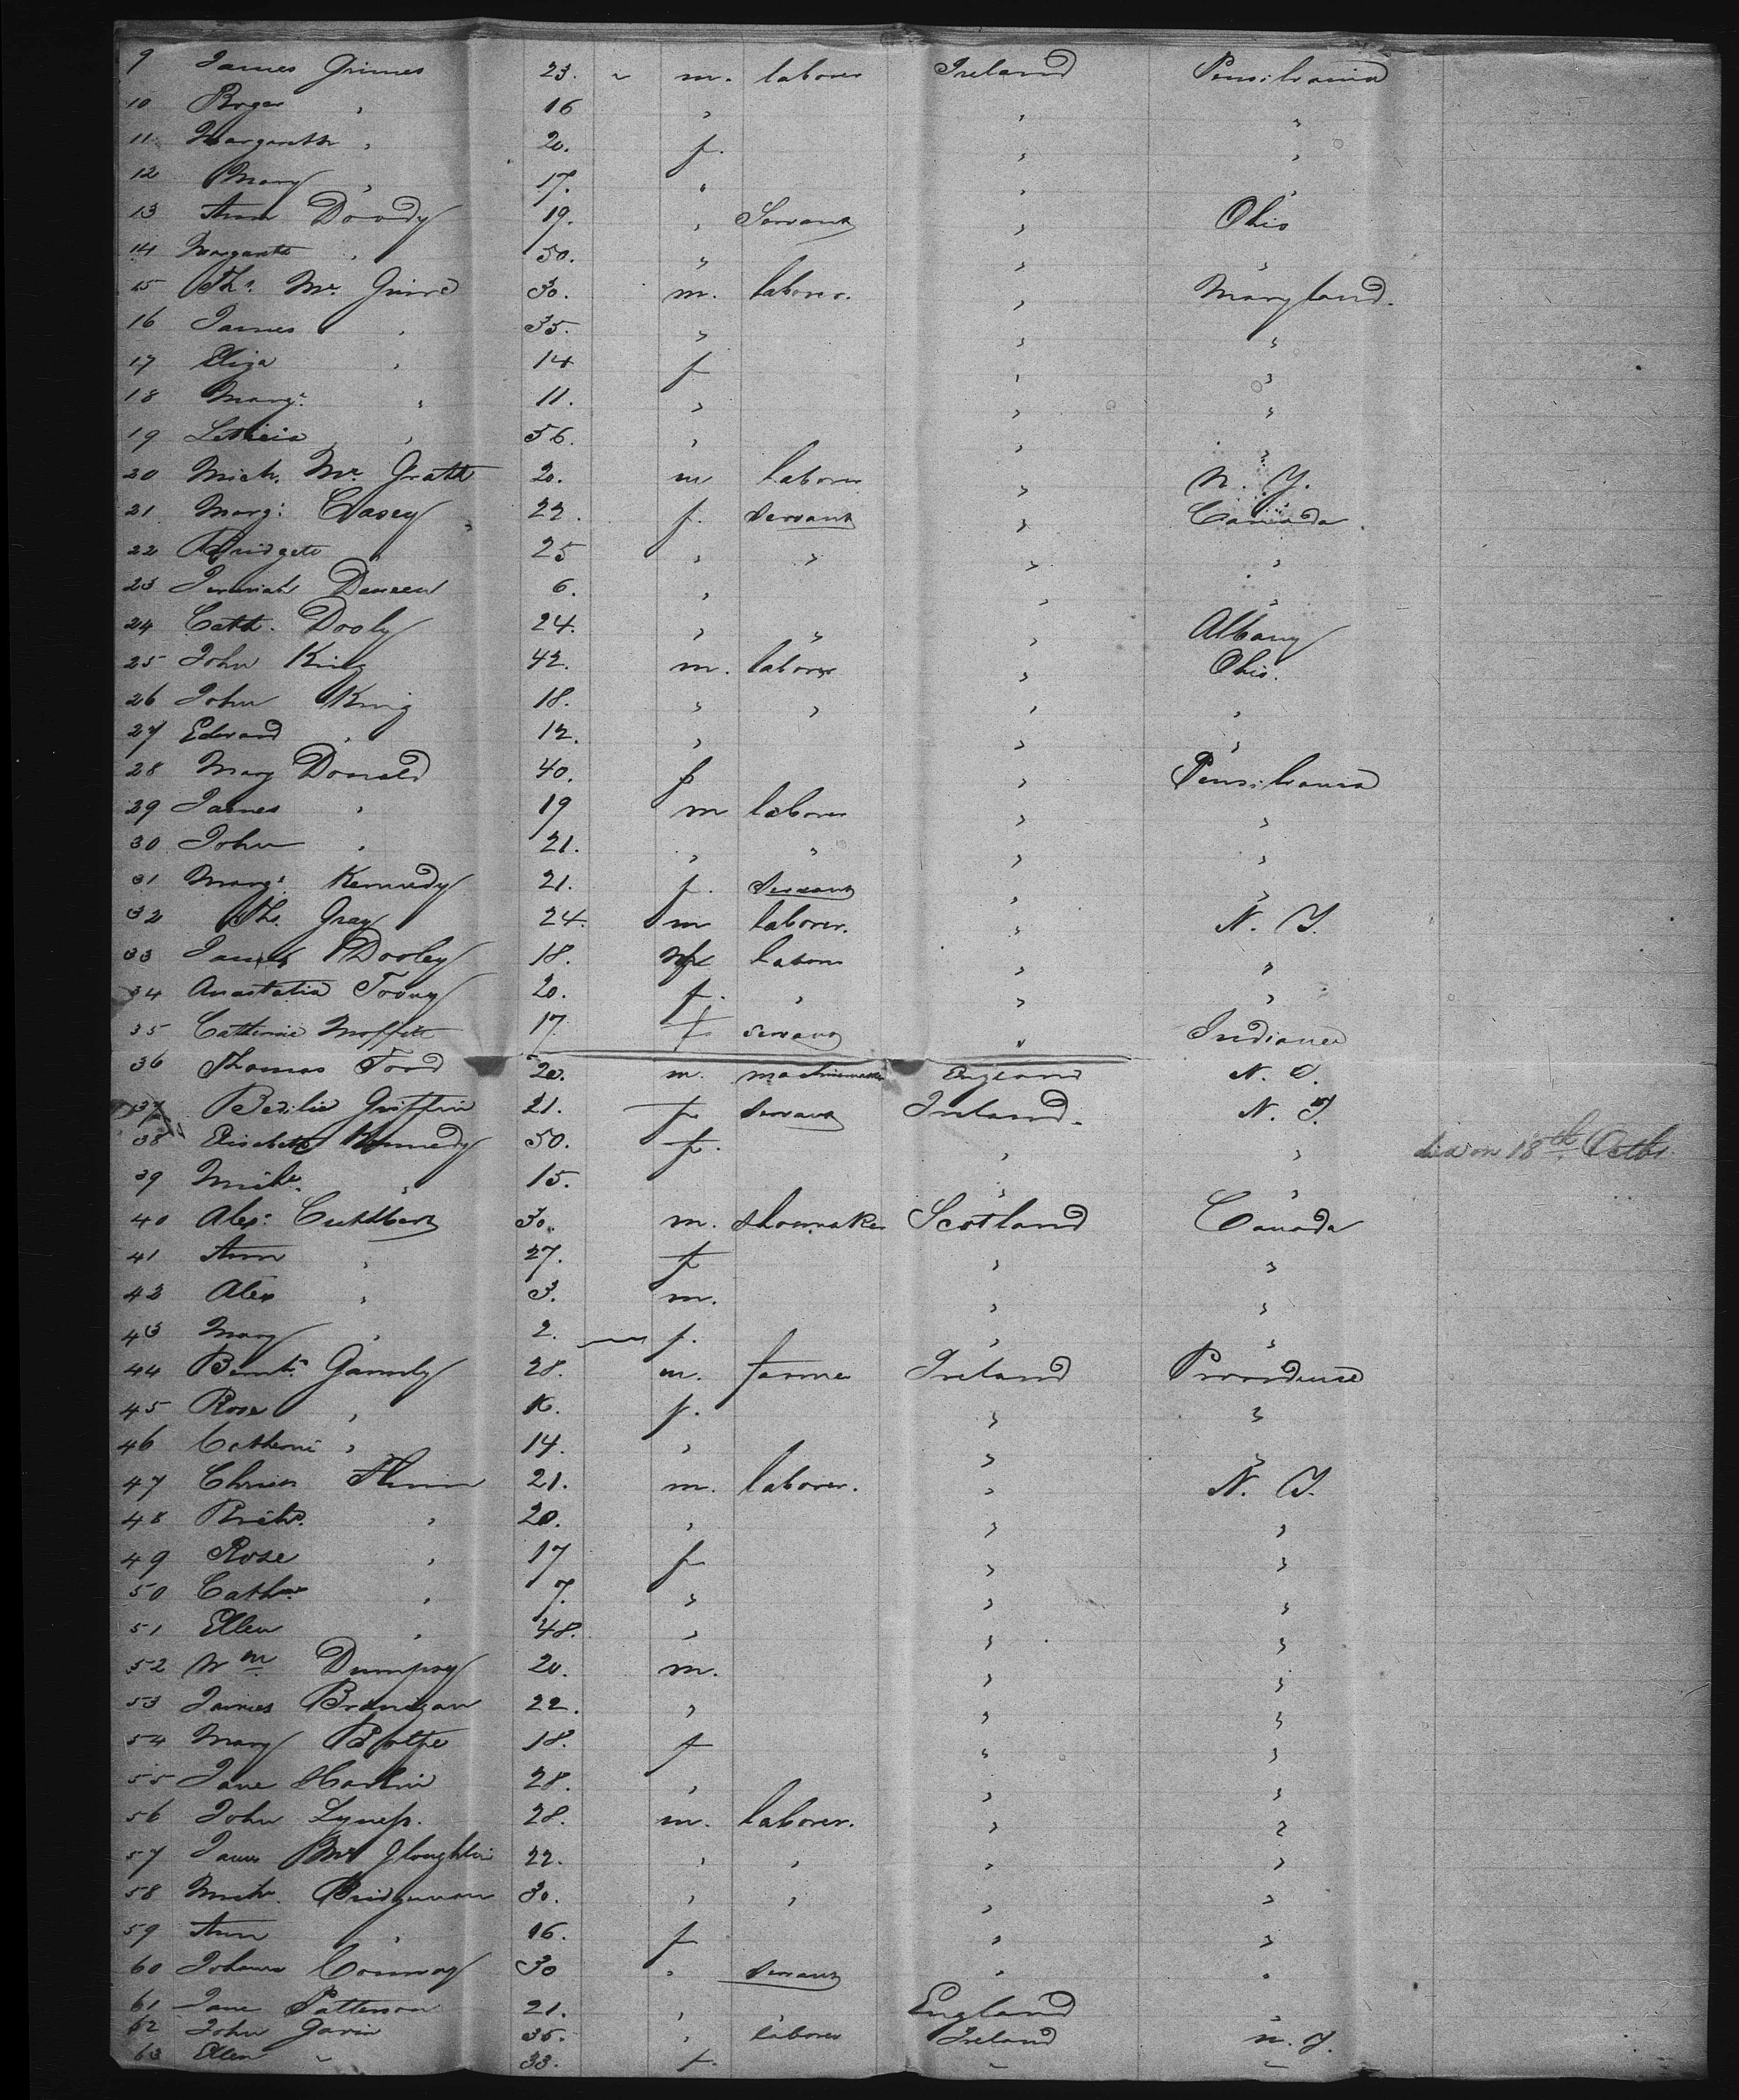 9 James Grimes 23. " m. laborer Ireland Pensilvania
10 Roger " 16 " " "
11 Margareth " 20. f. " "
12 Mary " 17. " " "
13 Ann Doody 19. " Servant " Ohio
14 Margareth " 50. " " "
15 Ths. Mc. Guire 30. m. laborer. " Maryland.
16 James " 35. " " "
17 Eliza " 14 f " "
18 Margt. " 11. " " "
19 Leticia " 56. " " "
20 Mich. Mc. Grath 20. m laborer " N. Y.
21 Marg: Casey 22. f. Servant " Canada
22 Bridgete " 25 " " " "
23 Jeremiah 6. " " "
24 Cath. Dooly 24. " " " Albany
25 John King 42. m. laborer " Ohio.
26 John King 18. " " " "
27 Edward " 12. " " "
28 Mary Donald 40. f " Pensilvania
29 James " 19 m laborer " "
30 John " 21. " " " "
31 Margt. Kennedy 21. f. Servant " "
32 Th. Gray 24. m laborer. " N. Y.
33 James Dooley 18. laborer " "
34 Anastatia 20. f. " " "
35 Catherine Moffitt 17 f servant " Indiana
36 Thomas Ford 20. m. machinemaker England N. Y.
37 Bedilia Griffin 21. f. Servant Ireland. N. Y.
38 Elisabeth Kennedy 50. f. " " died on 18th Octbr.
39 Mich. " 15. " "
40 Alex: Cuthbert 30. m. Shoemaker Scotland Canada
41 Ann " 27. f " "
42 Alex " 3. m. " "
43 Mary " 2. f. " "
44 28. m. farmer Ireland Providence
45 Rose " f. " "
46 Catherine " 14. " " "
47 21. m. laborer. " N. Y.
48 " 20. " " "
49 Rose " 17 f " "
50 Cathne. " 7. " " "
51 Ellen " 48. " " "
52 Wm Dumpsy 20. m. " "
53 James Branigan 22. " " "
54 Mary 18. f " "
55 Jane 28. " " "
56 John Lyness. 28. m. laborer. " "
57 James Mc Gloughlin 22. " " " "
58 Mich. Bridgeman 30. " " " "
59 Ann " 16. f " "
60 Johanna Conway 30 " Servant " "
61 Jane Patterson 21. " " England "
62 John Gavin 35. " laborer Ireland N. Y.
63 Ellen " 33. f. " "